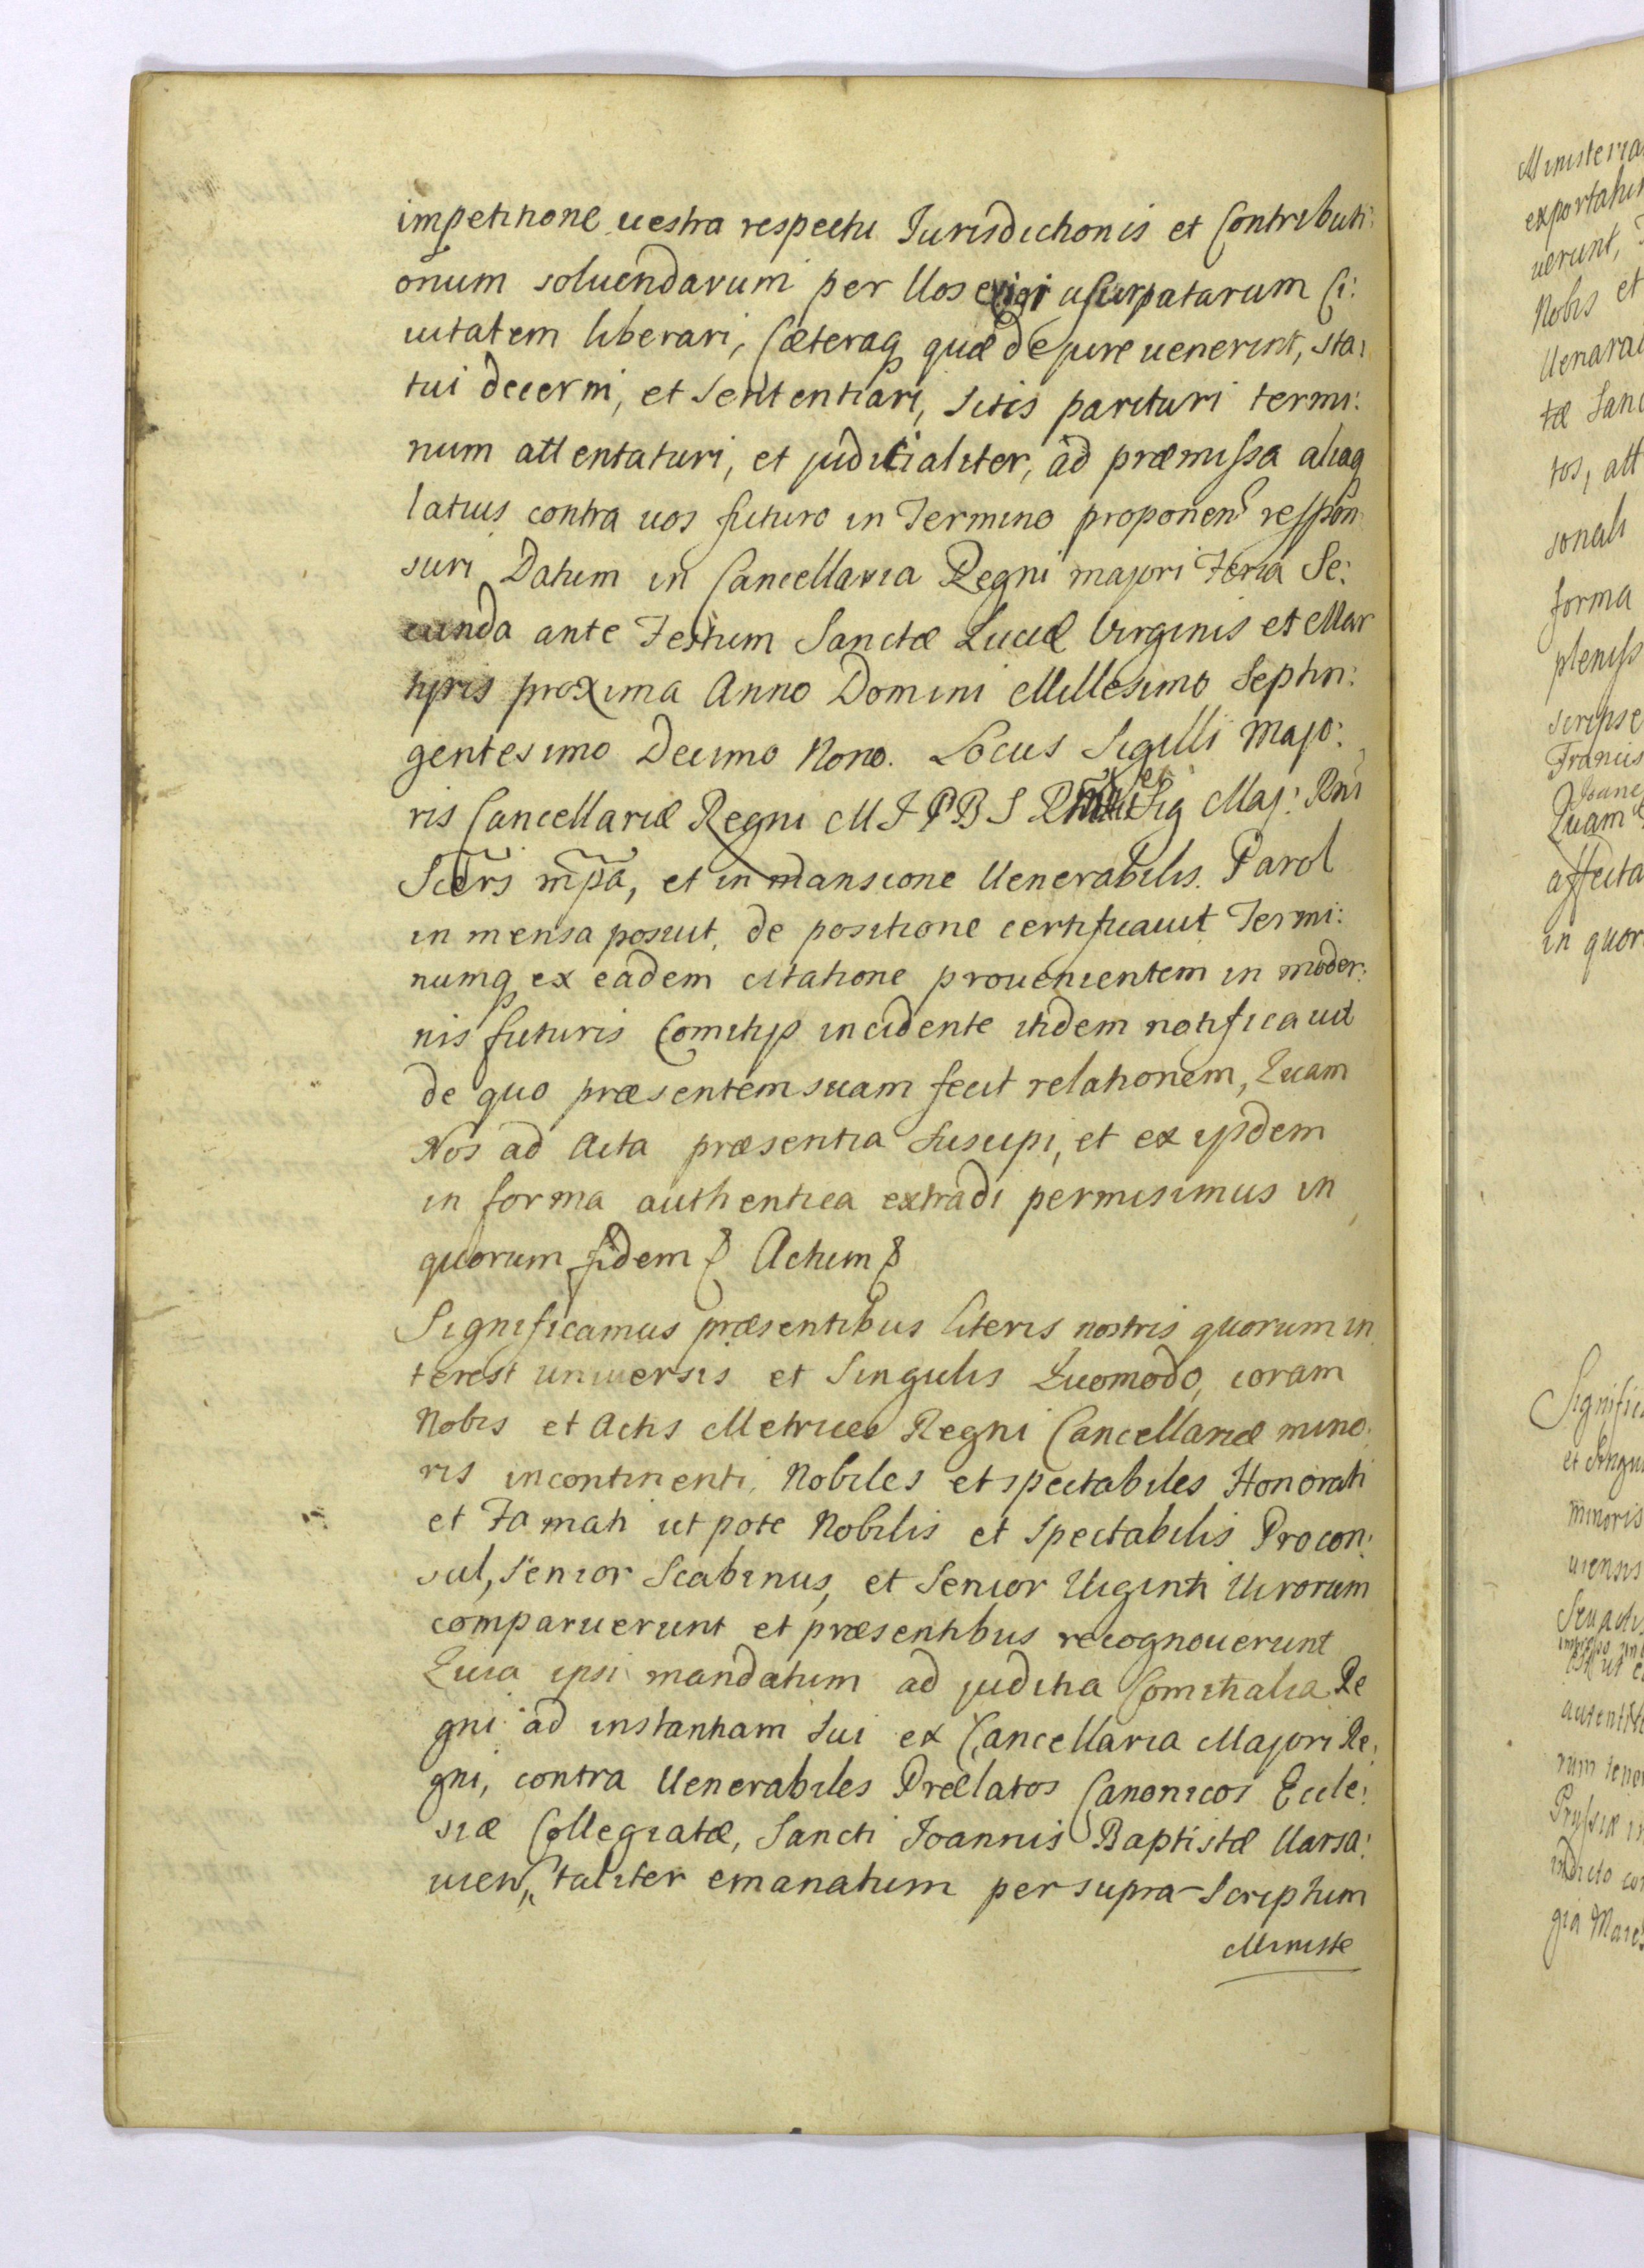 impetitione uestra respectu Jurisdictionis et Contributi:
onum soluendarum per Uos exigi usurpatarum Ci:
uitatem liberari, Cæteraq quæ de jure uenerint, sta:
tui decerni, et sententiari, sitis parituri termi:
num attentaturi, et juditialiter, ad præmissa aliaq
latius contra uos futuro in Termino proponen respon
suri Datum in Cancellaria Regni majori Feria Se:
cunda ante Festum Sanctæ Luciæ Virginis et Mar
tyris proxima Anno Domini Millesimo Septin:
gentesimo Decimo Nono. Locus Sigilli Majo:
ris Cancellariæ Regni M J P B S R Sig Maj: Rni
Scdrs mpa, et in mansione Uenerabilis Parol
in mensa posuit, de positione certificauit Termi:
numq ex eadem citatione prouenientem in moder:
nis futuris Comitijs incidente itidem notificauit
de quo præsentem suam fecit relationem, Quam
Nos ad Acta præsentia suscepi, et ex ijsdem
in forma authentica extradi permisimus in
quorum fidem Actum
Significamus præsentibus literis nostris quorum in
terest uniuersis et Singulis Quomodo, coram
Nobis et Actis Metrices Regni Cancellariæ mino:
ris incontinenti, Nobiles et spectabiles Honorati
et Famati ut pote Nobilis et Spectabilis Procon:
sul, Senior Scabinus, et Senior Uiginti Uirorum
comparuerunt et præsentibus recognouerunt
Quia ipsi mandatum ad juditia Comitialia Re
gni ad instantiam sui ex Cancellaria Majori Re:
gni, contra Uenerabiles Prælatos Canonicos Eccle:
siæ Collegiatæ, Sancti Joannis Baptistæ Uarsa:
uien, taliter emanatum per supra-Scriptum
Ministe
Ministeria
uerunt,
Nobis et
tæ Sanc
tos, att
sonali
forma
pleniss
Francis
Quam
affecta
in quor
Signific
et Singu
minoris
uiensis
indicto co